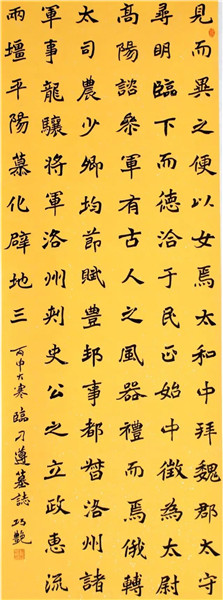 見而異之便以女焉太和中拜魏郡太守
尋明臨下而德洽于民正始中徵為太尉
高陽諮參軍有古人之風器禮而焉俄轉
太司農少卿均節賦豊邦事都督洛州諸
軍事龍驤將軍洛州刾史公之立政惠流
兩壇平陽慕化辟地三
丙申大寒臨刁遵墓誌 巧艷